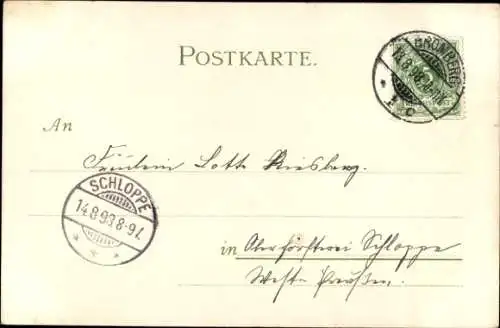 POSTKARTE.
BROMBERG
An
Fräulein Lotte Riesberg.
SCHLOPPE
14.8.98.8-9V.
in Oberförsterei Schloppe
West-Preußen.